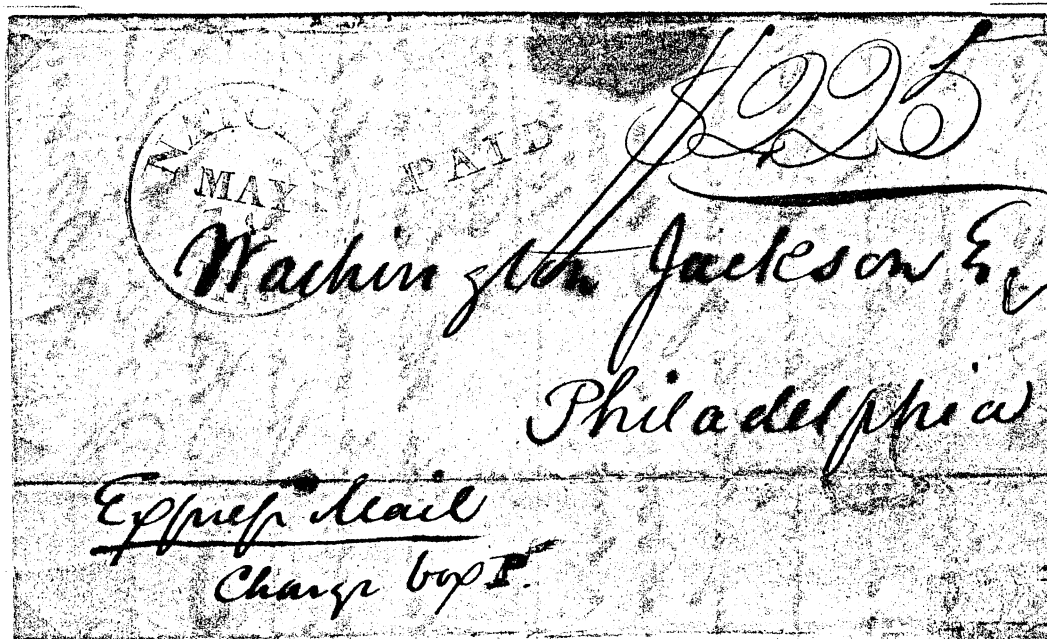 $2 25
PAID
MAY
Washington Jackson Esq
Philadelphia
Express Mail
Charge box P.